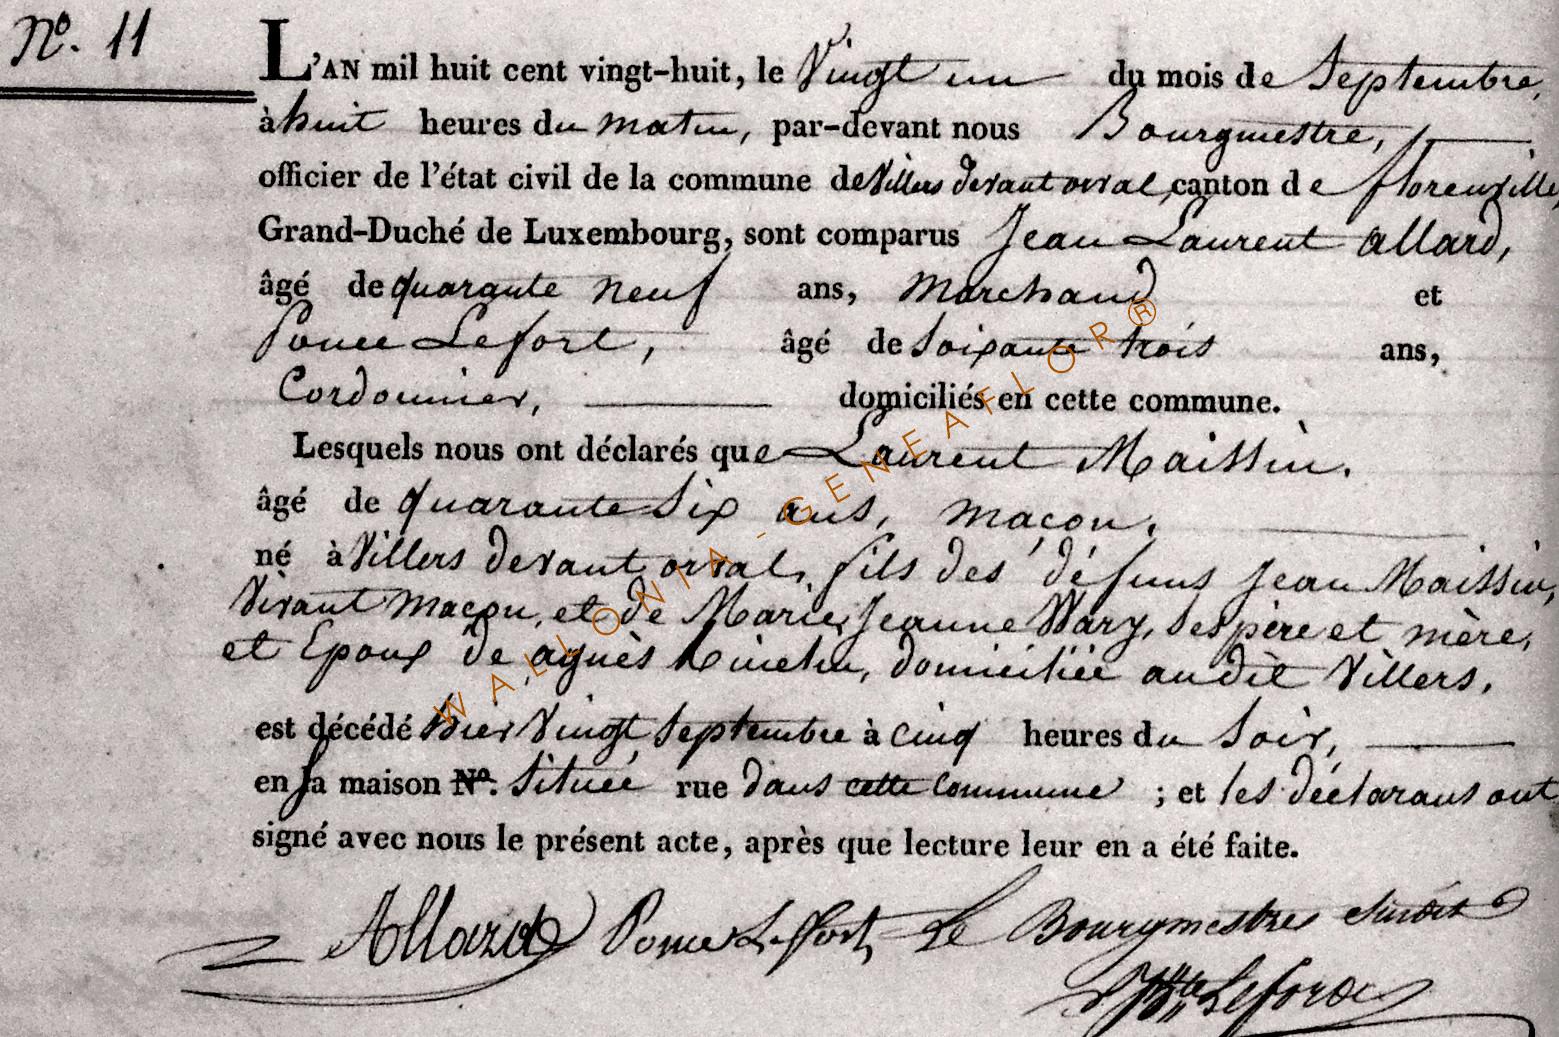 N°. 11
L'AN mil huit cent vingt-huit, le Vingt un du mois de Septembre,
à huit heures du matin, par-devant nous Bourgmestre,
officier de l'état civil de la commune de Villers devant orval, canton de florenville,
Grand-Duché de Luxembourg, sont comparus Jean Laurent allard,
âgé de quarante neuf ans, marchand et
Ponce Lefort, âgé de Soixante trois ans,
Cordonnier, domiciliés en cette commune.
Lesquels nous ont déclarés que Laurent Maissin.
âgé de quarante Six ans, maçon,
né à Villers devant orval, fils des défunts Jean Maissin,
Vivant maçon, et de Marie Jeanne Wary, Ses père et mère,
et Epoux de agnès domiciliée audit Villers,
est décédé hier Vingt Septembre à cinq heures du Soir,
en Sa maison N°. Située rue dans cette Commune ; et les déclarans ont
signé avec nous le présent acte, après que lecture leur en a été faite.
Allard Ponce Lefort Le Bourgmestre
Lefort
WALLONIA-GENEAFLOR®